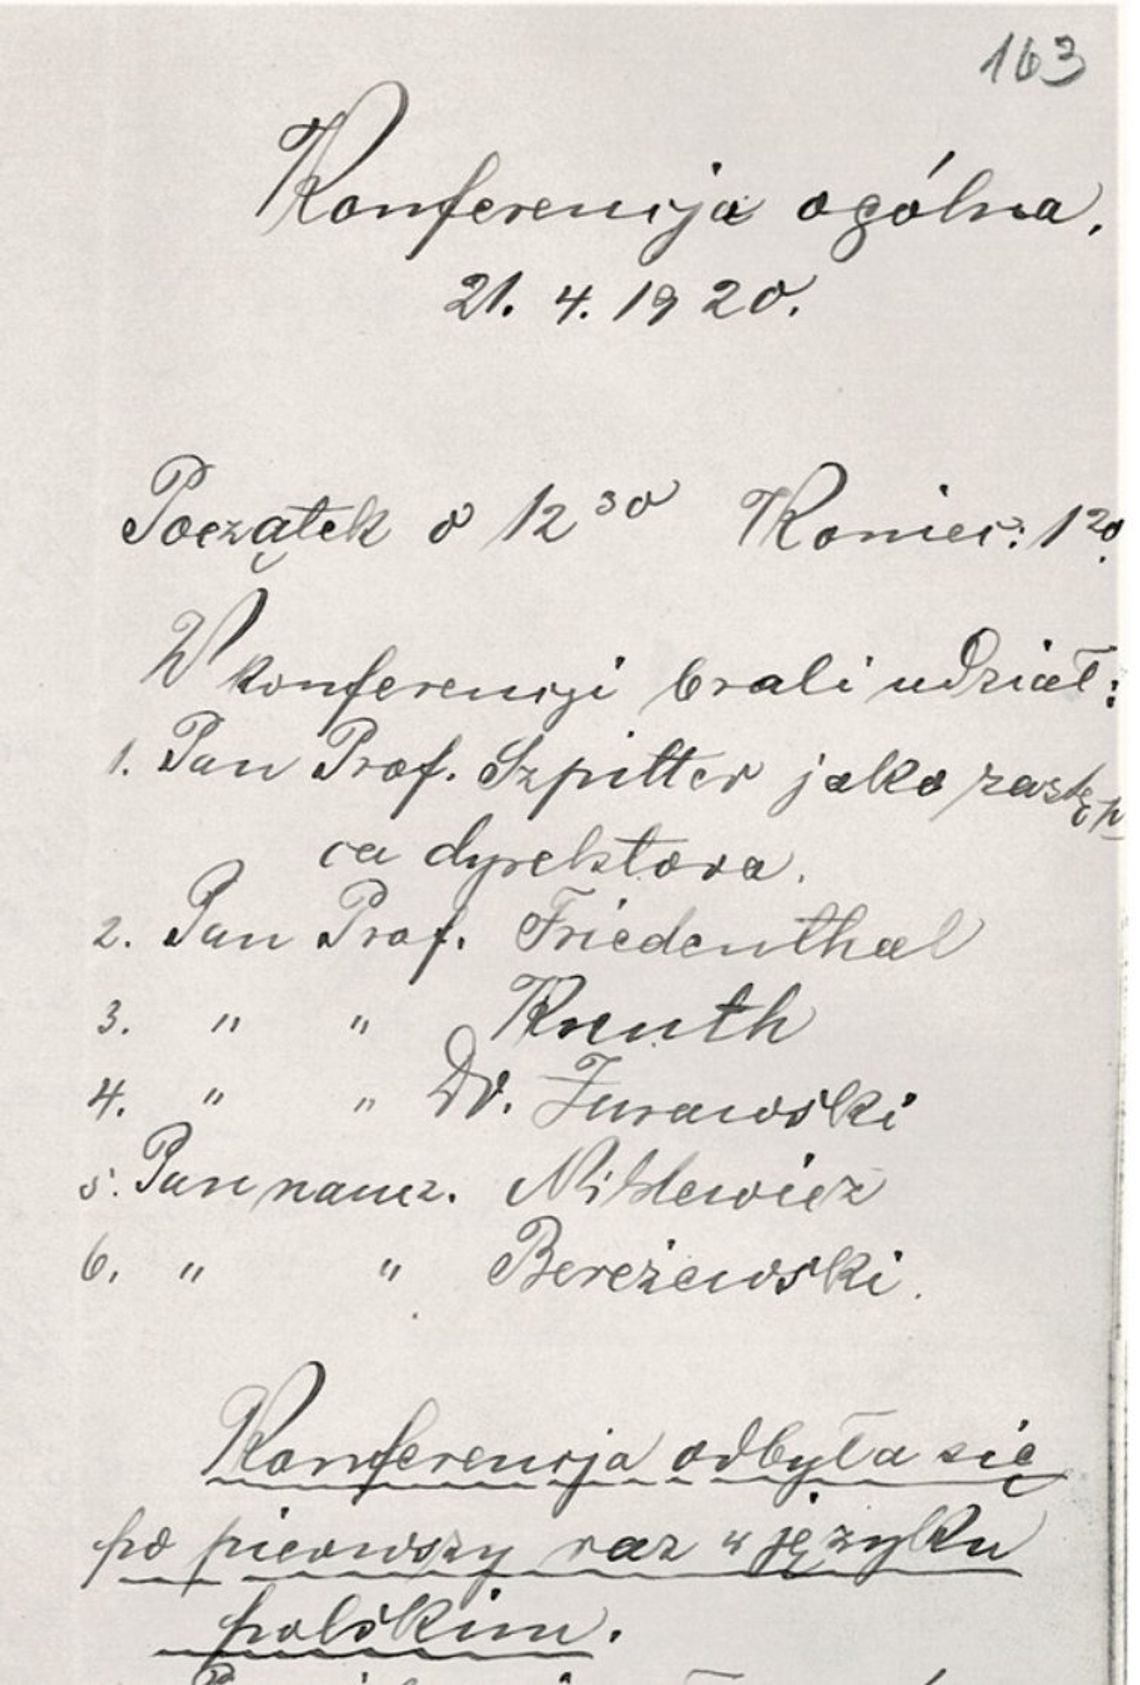 163
Konferencja ogólna.
21. 4. 1920.
Początek o 12³⁰ Koniec: 1²⁰.
W konferencji brali udział:
1. Pan Prof. Szpitter jako zastęp
ca dyrektora.
2. Pan Prof. Friedenthal
3. " " Knuth
4. " " Dr. Żurawski
5. Pan naucz. Niklewicz
6. " " Bereżewski.
Konferencja odbyła się
po pierwszy raz w języku
polskim.